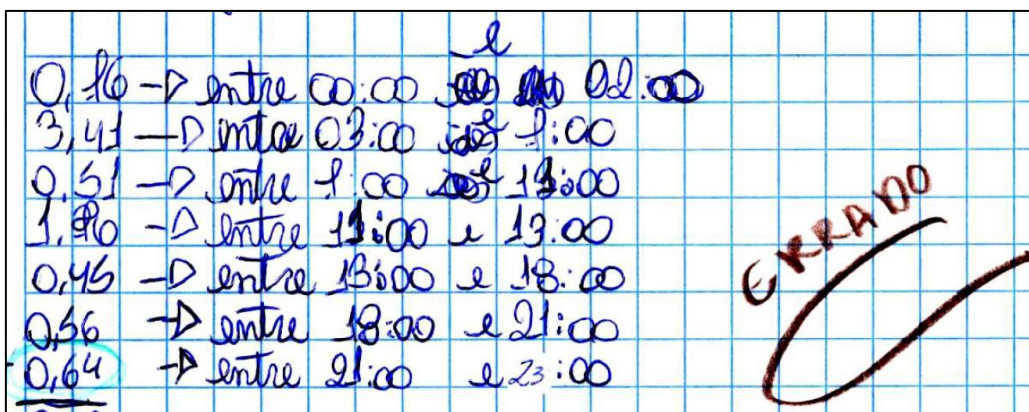 0,16 → entre 00:00 e 02:00
3,41 → entre 03:00 e 7:00
0,51 → entre 7:00 e 11:00
1, → entre 11:00 e 13:00
0,45 → entre 13:00 e 18:00
0,56 → entre 18:00 e 21:00
0,64 → entre 21:00 e 23:00
ERRADO